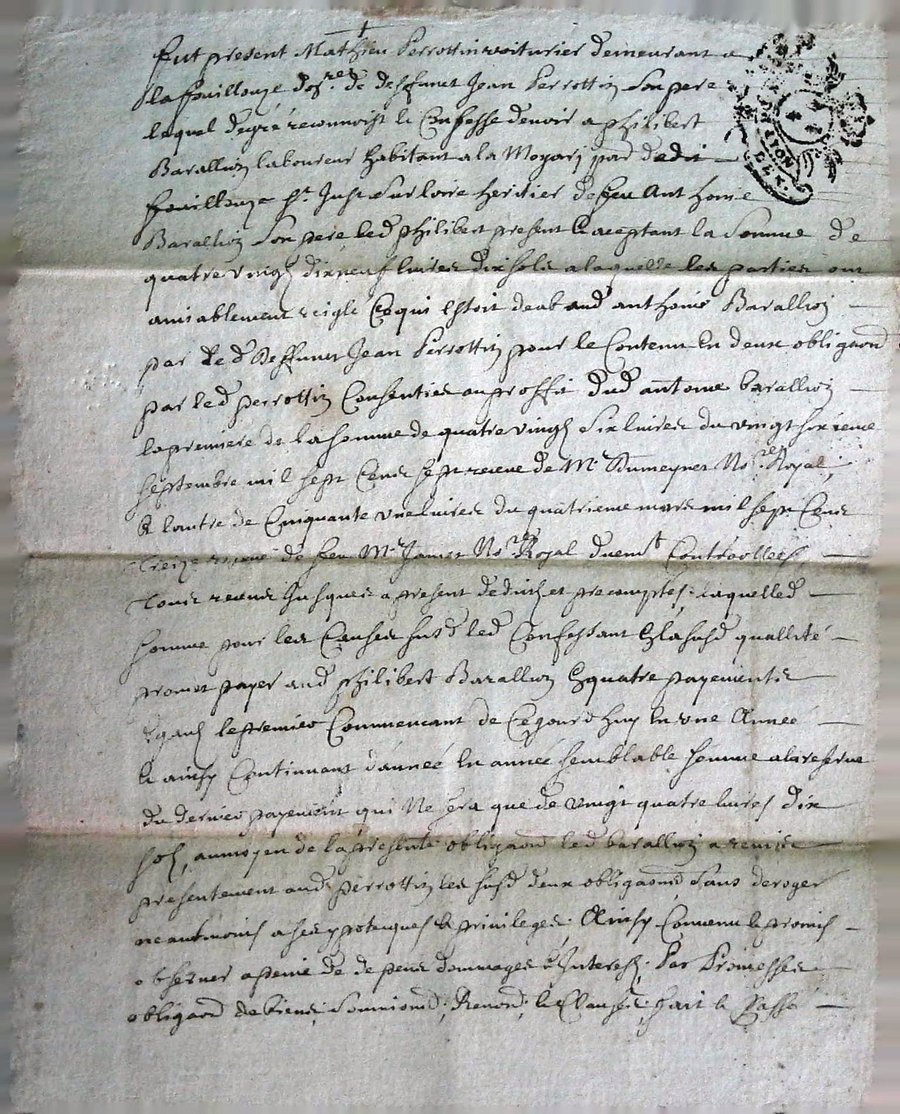 fut present Mathieu Perrottin voiturier demeurant a
la fouillouze de deffunct Jean Perrottin son pere
lequel de gré reconnoist & Confesse devoir a philibert
Barallion laboureur habitant a la par dedit
fouillouze St. Just sur loire heritier de feu Anthoine
Barallion son pere led philibert present & aceptant la somme de
quatre vingt dix neuf livres dix sols a laquelle les parties ont
amiablement reiglé Ce qui Estoit deub aud anthoine Barallion
par led Deffunct Jean Perrottin pour le Contenu En deux obligaons
par led perrottin Consenties au proffit dud antoine barallion
la premiere de la somme de quatre vingt six livres du vingt sixieme
septembre mil sept Cens sept receue de Me Dumeynet Nore Royal,
& l'autre de Cinquante une livres du quatrieme mars mil sept Cens
treize receue de feu Me Jamet Nore Royal duemt Controollees,
jusques a present deduits et precomptes: laquelled
somme pour les Causes susd led Confessant Es la susd quallité
promet payer aud philibert Barallion En quatre payements
egaux le premier Commencant de Cejourdhuy En une Année
& ainsy Continuant d'année En année semblable somme a la reserve
du dernier payement qui Ne sera que de vingt quatre livres dix
sols, au moyen de la presente obligaon led barallion a remis
presentement aud perrottin les susd deux obligaons sans deroger
neantmoins a ses ypoteques & privileges. Ainsy Convenu & promis
observer a peine de depens dommages & Interests. Par Promesses
obligaon de biens, Soumions, Renons, & Clauses, fait & Passé
DE LYON